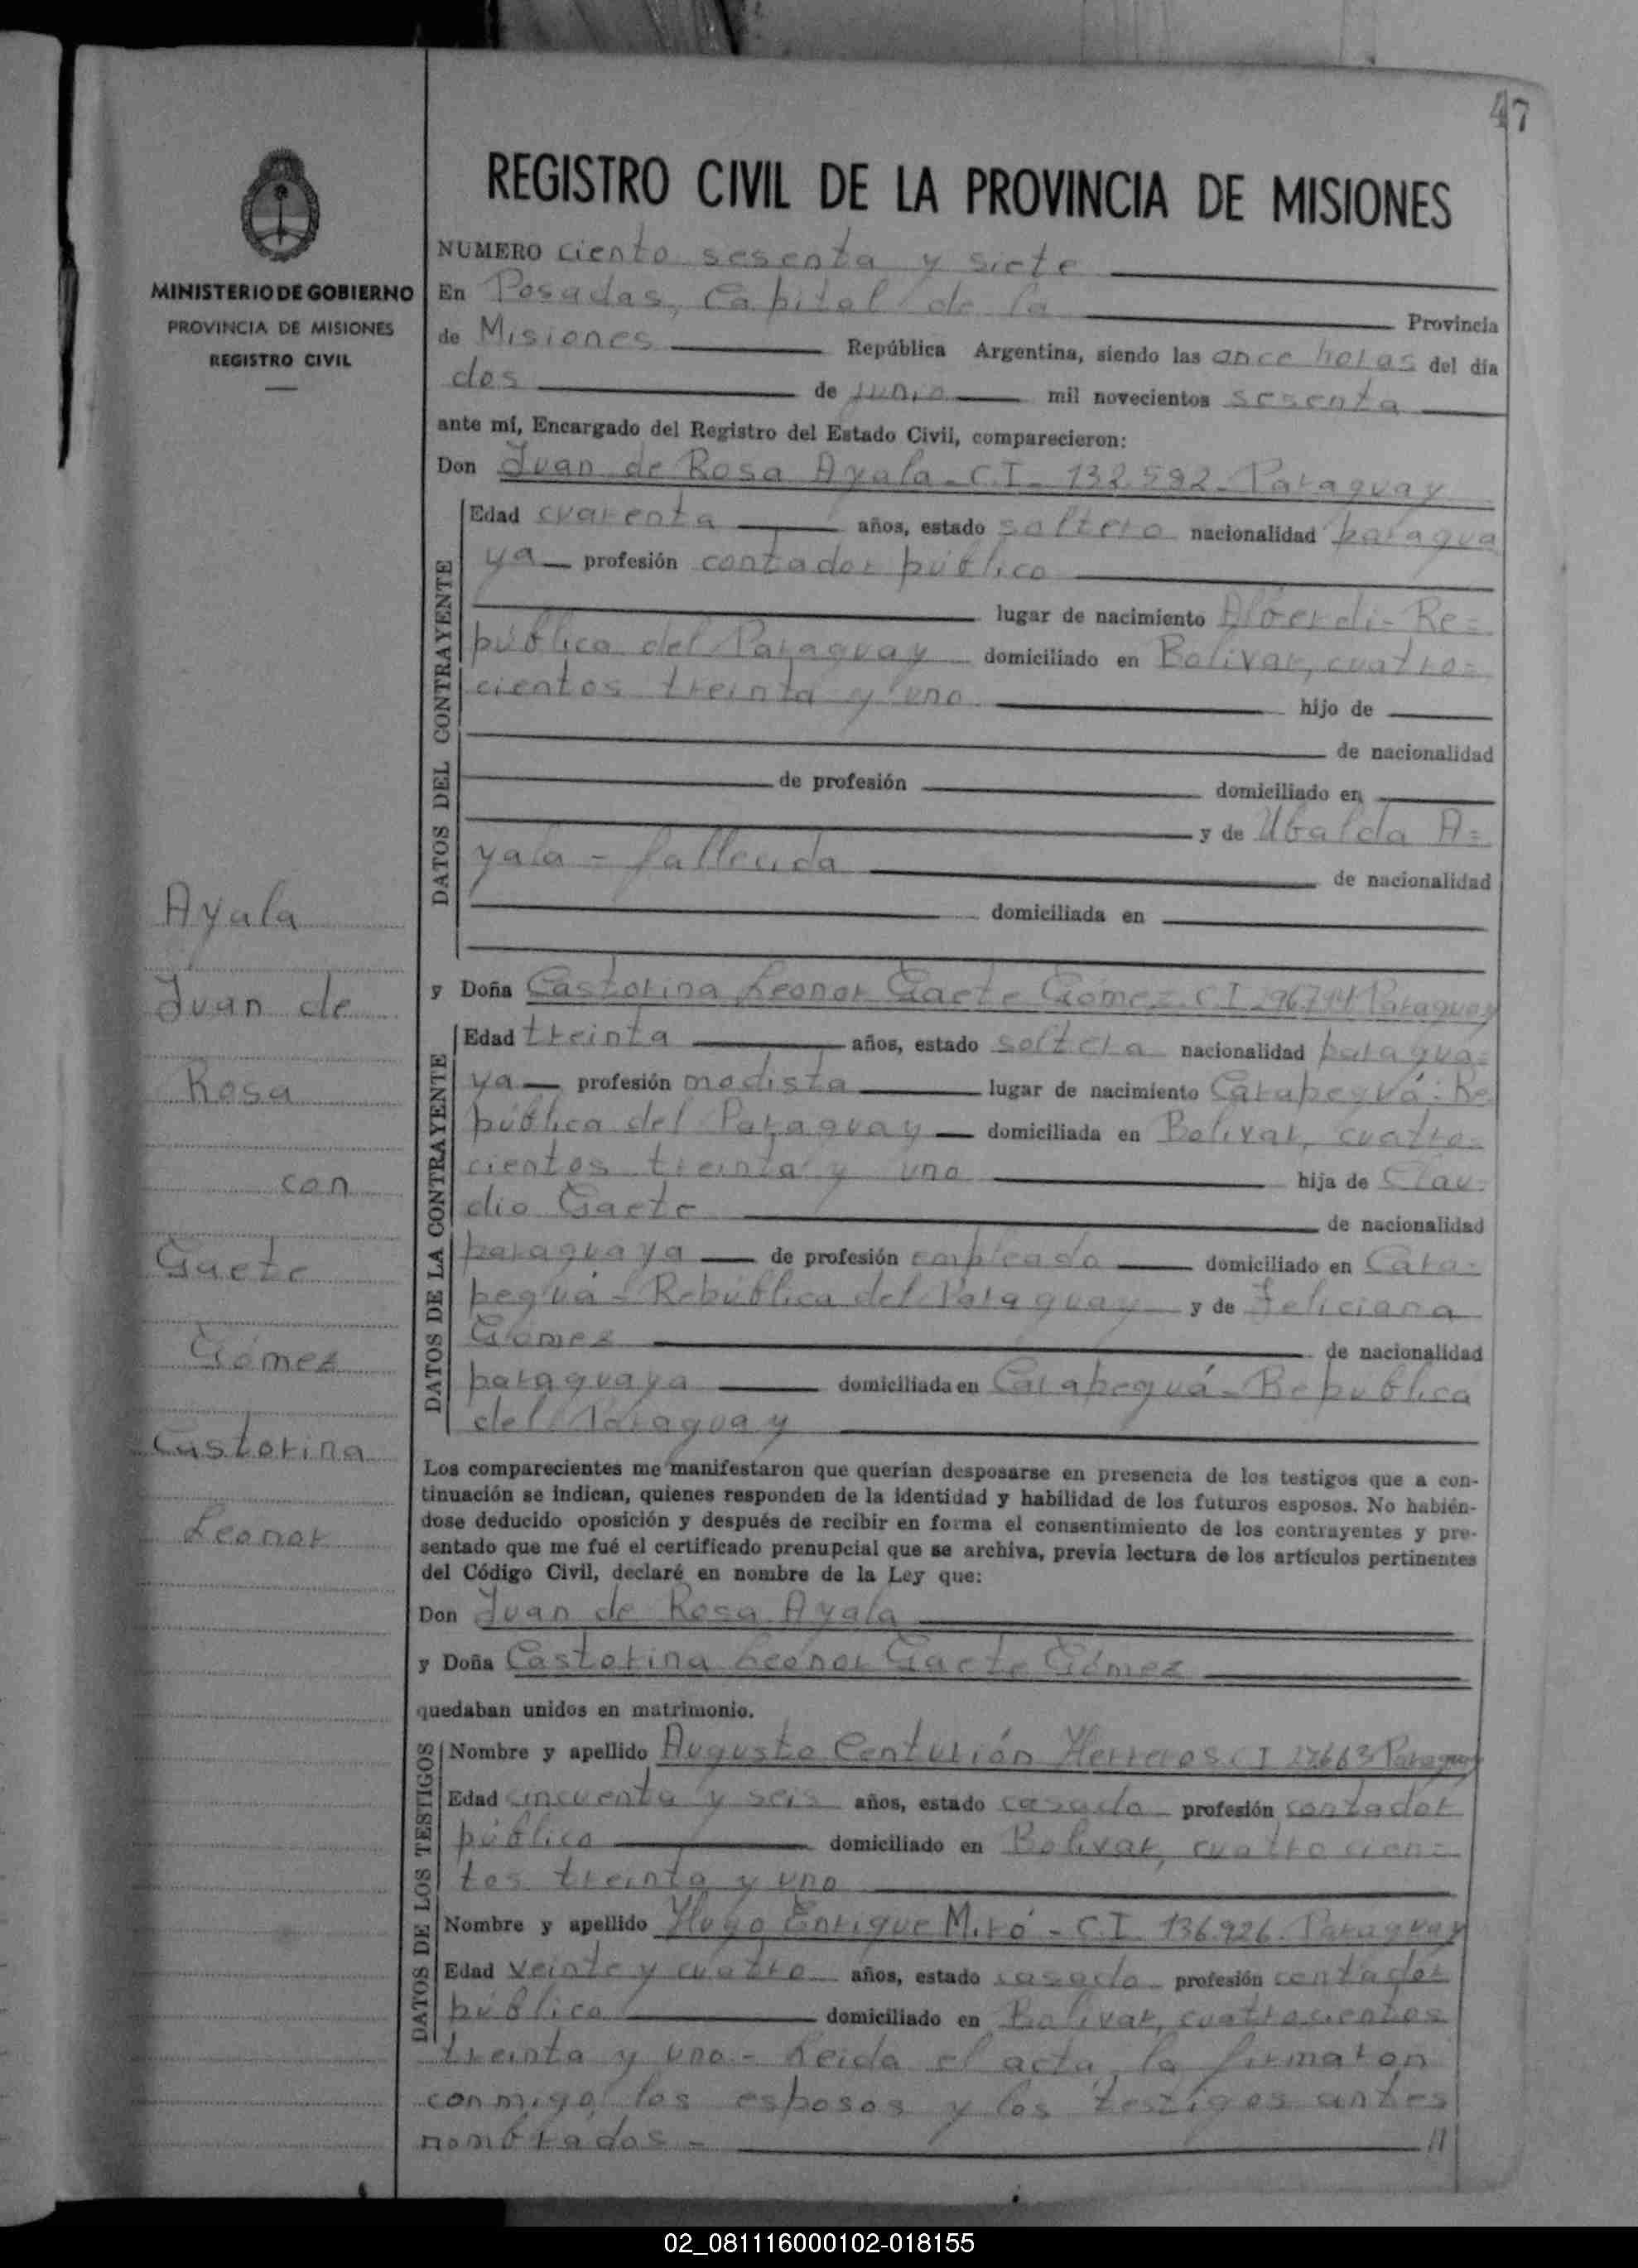 47
REGISTRO CIVIL DE LA PROVINCIA DE MISIONES
MINISTERIO DE GOBIERNO
PROVINCIA DE MISIONES
REGISTRO CIVIL
Ayala
Juan de
Rosa
con
Gaete
Gómez
Castorina
Leonor
NUMERO ciento sesenta y siete
En Posadas, Capital de la Provincia
de Misiones República Argentina, siendo las once horas del día
dos de junio mil novecientos sesenta
ante mí, Encargado del Registro del Estado Civil, comparecieron:
Don Juan de Rosa Ayala - C.I. 132.592 - Paraguay
DATOS DEL CONTRAYENTE
Edad cuarenta años, estado soltero nacionalidad paragua
ya profesión contador público
lugar de nacimiento Alberdi - Re=
pública del Paraguay domiciliado en Bolivar, cuatro=
cientos treinta y uno hijo de
de nacionalidad
de profesión domiciliado en
y de Ubalda A=
yala - fallecida de nacionalidad
domiciliada en
y Doña Castorina Leonor Gaete Gómez C.I. Paraguay
DATOS DE LA CONTRAYENTE
Edad treinta años, estado soltera nacionalidad paragua=
ya profesión modista lugar de nacimiento Carapeguá - Re
pública del Paraguay domiciliada en Bolivar, cuatro=
cientos treinta y uno hija de Clau=
dio Gaete de nacionalidad
paraguaya de profesión empleado domiciliado en Cara=
peguá - República del Paraguay y de Feliciana
Gómez de nacionalidad
paraguaya domiciliada en Carapeguá - República
del Paraguay
Los comparecientes me manifestaron que querían desposarse en presencia de los testigos que a con-
tinuación se indican, quienes responden de la identidad y habilidad de los futuros esposos. No habién-
dose deducido oposición y después de recibir en forma el consentimiento de los contrayentes y pre-
sentado que me fué el certificado prenupcial que se archiva, previa lectura de los artículos pertinentes
del Código Civil, declaré en nombre de la Ley que:
Don Juan de Rosa Ayala
y Doña Castorina Leonor Gaete Gómez
quedaban unidos en matrimonio.
DATOS DE LOS TESTIGOS
Nombre y apellido Augusto Centurión Herreros C.I. 27663 Paraguay
Edad cincuenta y seis años, estado casado profesión contador
público domiciliado en Bolivar, cuatrocien=
tos treinta y uno
Nombre y apellido Hugo Enrique Miró - C.I. 136.926 - Paraguay
Edad veinte y cuatro años, estado casado profesión contador
público domiciliado en Bolivar, cuatrocientos
treinta y uno - Leída el acta, la firmaron
conmigo los esposos y los testigos antes
nombrados - //
02_081116000102-018155